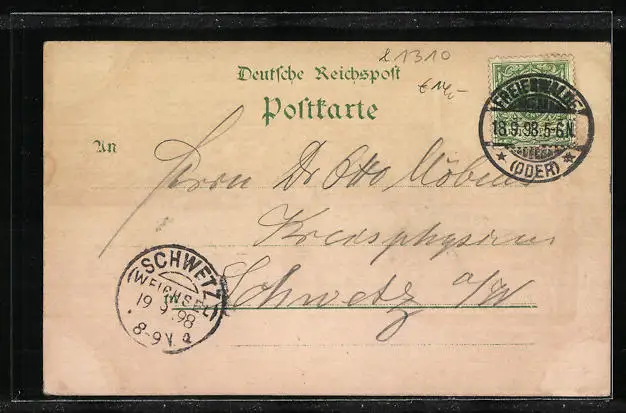 L1310
€ 14,-
Deutsche Reichspost
Postkarte
An
Herrn Dr Otto Möbius
Kreisphysicus
Schwetz a/W
FREIENWALDE
18.9.98.5-6.N.
(ODER)
SCHWETZ
(WEICHSEL)
19.9.98
8-9V.